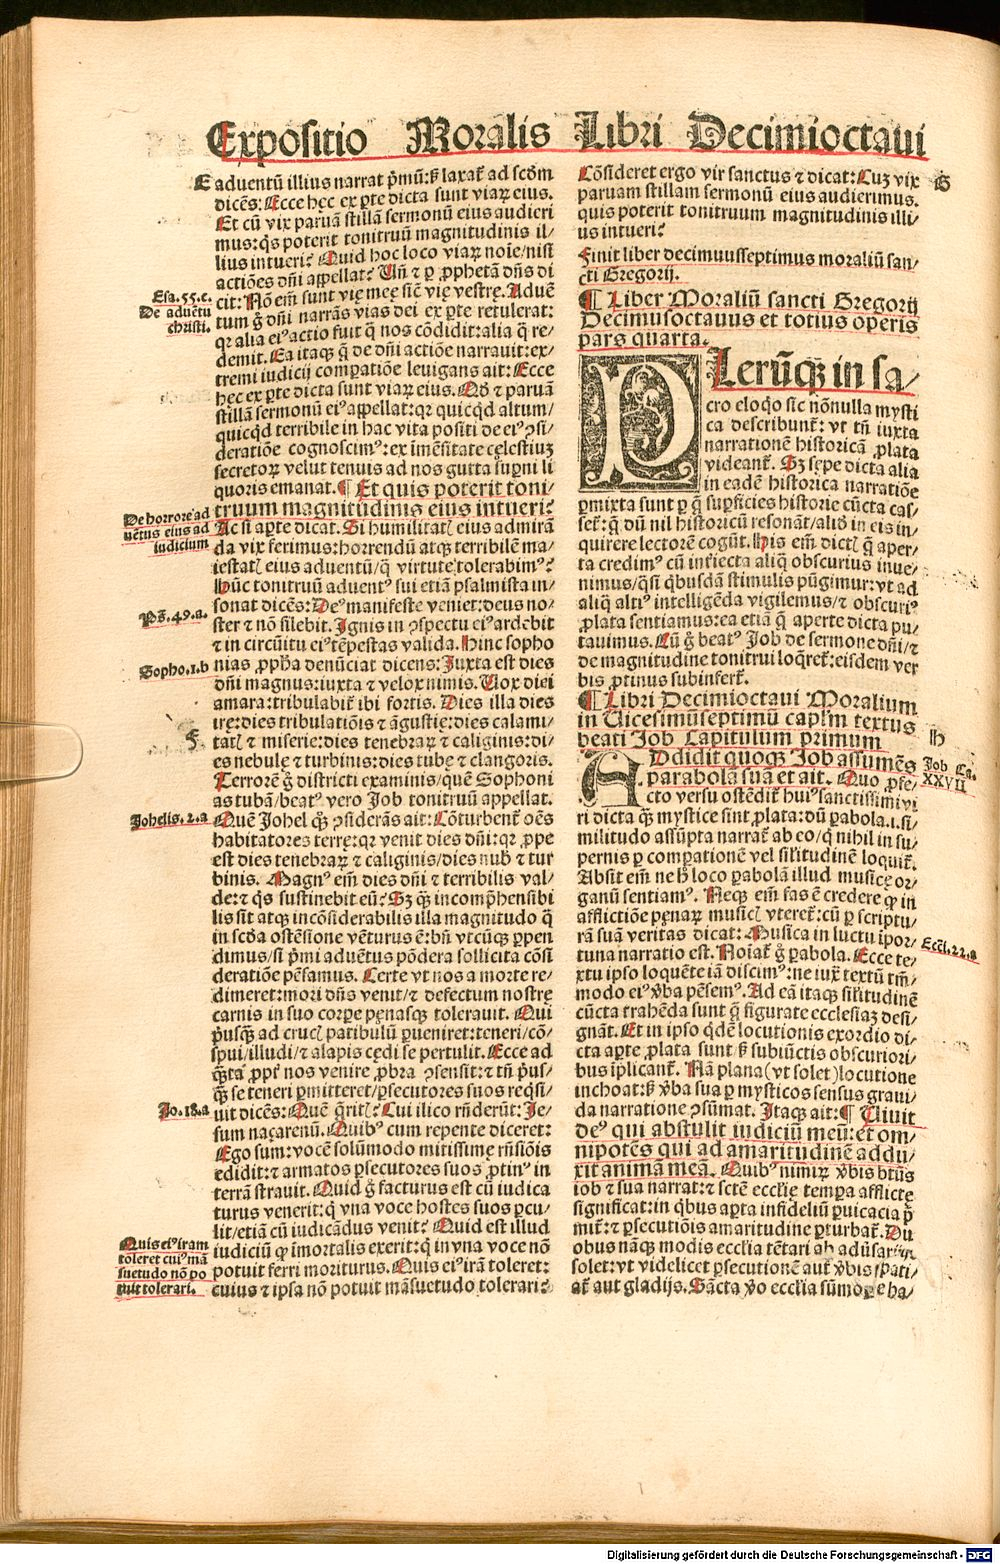 Expositio Moralis Libri Decimioctaui
E
aduentū illius narrat p̄mū: ſꝫ laxat̄ ad ſcd̄m
dicēs: Ecce hec ex ꝑte dicta ſunt viaꝝ eius.
Et cū vix paruā ſtillā ſermonū eius audieri
mus: q̇s poterit tonitruū magnitudinis il-
lius intueri? Quid hoc loco viaꝝ noīe/ niſi
actiões dn̄i appellat? Un̄ ⁊ ꝑ ꝓphetā dn̄s di
cit: Nō em̄ ſunt vię męę ſic̄ vię veſtrę. Aduē
tum g̊ dn̄i narrās vias dei ex ꝑte retulerat:
qꝛ alia ei⁹ actio fuit q̄ nos cōdidit: alia q̄ re-
demit. Ea itaqꝫ q̄ de dn̄i actiōe narrauit: ex-
tremi iudicij compatiōe leuigans ait: Ecce
hec ex ꝑte dicta ſunt viaꝝ eius. Qđ ⁊ paruā
ſtillā ſermonū ei⁹ appellat: qꝛ quicq̇d altum/
quicq̇d terribile in hac vita poſiti de ei⁹ ꝯſi-
deratiōe cognoſcim⁹: ex imēſitate cęleſtiuꝫ
ſecretoꝝ velut tenuis ad nos gutta ſuꝑni li
quoris emanat. ¶ Et quis poterit toni-
truum magnitudinis eius intueri?
Ac ſi aꝑte dicat. Si humilitat̄ eius admirā
da vix ferimus: horrendū atqꝫ terribilē ma-
ieſtat̄ eius aduentū/ q̄ virtute tolerabim⁹?
Hūc tonitruū aduent⁹ ſui etiā pſalmiſta in-
ſonat dicēs: De⁹ manifeſte veniet: deus no-
ſter ⁊ nō ſilebit. Ignis in ꝯſpectu ei⁹ ardebit
⁊ in circūitu ei⁹ tēpeſtas valida. Hinc ſopho
nias ꝓpha denūciat dicens: Juxta eſt dies
dn̄i magnus: iuxta ⁊ velox nimis. Uox diei
amara: tribulabit̄ ibi fortis. Dies illa dies
irę: dies tribulatiōis ⁊ āguſtię: dies calami-
tat̄ ⁊ miſerie: dies tenebraꝝ ⁊ caliginis: di-
es nebulę ⁊ turbinis: dies tubę ⁊ clangoris.
Terrorē g̊ diſtricti examinis/ quē Sophoni
as tubā/ beat⁹ vero Job tonitruū appellat.
Quē Johel qꝫ ꝯſiderās ait: Cōturbent̄ oēs
habitatores terrę: qꝛ venit dies dn̄i: qꝛ ꝓpe
eſt dies tenebraꝝ ⁊ caliginis/ dies nub̄ ⁊ tur
binis. Magn⁹ em̄ dies dn̄i ⁊ terribilis val-
de: ⁊ q̇s ſuſtinebit eū? Sꝫ qꝫ incomp̄henſibi
lis ſit atqꝫ incōſiderabilis illa magnitudo q̄
in ſcd̄a oſtēſione vēturus ē: bn̄ vtcūqꝫ ꝑpen
dimus/ ſi p̄mi aduētus pōdera ſollicita cōſi
deratiōe pēſamus. Certe vt nos a morte re-
dimeret: mori dn̄s venit/ ⁊ defectum noſtrę
carnis in ſuo corpe pęnaſqꝫ tolerauit. Qui
p̄uſqꝫ ad cruc̄ patibulū ꝑueniret: teneri/ cō-
ſpui/ illudi/ ⁊ alapis cędi ſe pertulit. Ecce ad
q̄ta ꝓpt̄ nos venire ꝓbra ꝯſenſit: ⁊ tn̄ p̄uſ-
qꝫ ſe teneri ꝑmitteret/ ꝑſecutores ſuos req̇ſi-
uit dicēs: Quē q̄rit̄? Cui ilico rn̄derūt: Je-
ſum naçarenū. Quib⁹ cum repente diceret:
Ego ſum: vocē ſolūmodo mitiſſimę rn̄ſiōis
edidit: ⁊ armatos ꝑſecutores ſuos ꝓtin⁹ in
terrā ſtrauit. Quid g̊ facturus eſt cū iudica
turus venerit: q̇ vna voce hoſtes ſuos ꝑcu-
lit/ etiā cū iudicādus venit? Quid eſt illud
iudiciū ꝙ īmortalis exerit: q̇ in vna voce nō
potuit ferri moriturus. Quis ei⁹ irā toleret:
cuius ⁊ ipſa nō potuit māſuetudo tolerari?
Eſa. 55. c.
De aduētu
chriſti.
De horrore ad
uētus eius ad
iudicium
Ps̄. 49. a.
Sopho. 1. b
F
Johelis. 2. a
Jo. 18. a
Quis ei⁹ iram
toleret cui⁹ mā
ſuetudo nō po
tuit tolerari.
Cōſideret ergo vir ſanctus ⁊ dicat: Cuꝫ vix
paruam ſtillam ſermonū eius audierimus.
quis poterit tonitruum magnitudinis illi-
us intueri?
G
Finit liber decimuſſeptimus moraliū ſan-
cti Gregorij.
¶ Liber Moraliū ſancti Gregorij
Decimuſoctauus et totius operis
pars quarta.
PLerūqꝫ in ſa-
cro eloq̇o ſic nōnulla myſti
ca deſcribunt̄: vt tn̄ iuxta
narrationē hiſtoricā ꝓlata
videant̄. Sꝫ ſępe dicta alia
in eadē hiſtorica narratiōe
ꝑmixta ſunt ꝑ q̄ ſuꝑficies hiſtorie cūcta caſ-
ſet̄: q̄ dū nil hiſtoricū reſonāt/ aliđ in eis in-
quirere lectorē cogūt. His em̄ dict̄ q̄ aper-
ta credim⁹ cū inṫiecta aliq̄ obſcurius inue-
nimus/ q̄ſi q̇buſdā ſtimulis pūgimur: vt ad
aliq̄ alti⁹ intelligēda vigilemus/ ⁊ obſcuri⁹
ꝓlata ſentiamus: ea etiā q̄ aperte dicta pu-
tauimus. Cū g̊ beat⁹ Job de ſermone dn̄i/ ⁊
de magnitudine tonitrui loq̄ret̄: eiſdem ver
bis ꝓtinus ſubinfert̄.
¶ Libri Decimioctaui Moralium
in Uiceſimūſeptimū capl̄m textus
beati Job Capitulum primum
H
ADdidit quoqꝫ Job aſſumēs
parabolā ſuā et ait. Quo ꝓfe-
cto verſu oſtēdit̄ hui⁹ ſanctiſſimi vi
ri dicta qꝫ myſtice ſint ꝓlata: dū ꝑabola .i. ſi-
militudo aſſūpta narrat̄ ab eo/ q̇ nihil in ſu-
pernis ꝑ compationē vel ſil̄itudinē loquit̄.
Abſit em̄ ne h̊ loco ꝑabolā illud muſicę or-
ganū ſentiam⁹. Neqꝫ em̄ fas ē credere ꝙ in
afflictiōe pęnaꝝ muſic̄ vteret̄: cū ꝑ ſcriptu-
rā ſuā veritas dicat: Muſica in luctu īpor-
tuna narratio eſt. Noīat̄ g̊ ꝑabola. Ecce te-
xtu ipſo loquēte iā diſcim⁹: ne iux̄ textū tm̄-
modo ei⁹ v̄ba pēſem⁹. Ad eā itaqꝫ ſil̄itudinē
cūcta trahēda ſunt q̄ figurate eccleſiaꝫ deſi-
gnāt. Et in ipſo q̇dē locutionis exordio di-
cta aꝑte ꝓlata ſunt/ ſꝫ ſubiūctis obſcuriori-
bus īplicant̄. Nā plana (vt ſolet) locutione
inchoat: ſꝫ v̄ba ſua ꝑ myſticos ſenſus graui-
da narratione ꝯſūmat. Itaqꝫ ait: ¶ Uiuit
de⁹ qui abſtulit iudiciū meū: et om-
nipotēs qui ad amaritudinē addu-
xit animā meā. Quib⁹ nimiꝝ v̄bis bt̄us
iob ⁊ ſua narrat: ⁊ ſctē eccl̄ię tempa afflictę
ſignificat: in q̇bus aꝑta infideliū ꝑuicacia p̄
mit̄: ⁊ ꝑſecutiōis amaritudine ꝑturbat̄. Du
obus nāqꝫ modis eccl̄ia tētari ab aduſarijs
ſolet: vt videlicet ꝑſecutionē aut v̄bis pati-
at̄ aut gladijs. Sācta v̊o eccl̄ia ſūmope ha-
Job Ca.
XXVII
Eccl̄. 22. a
Digitalisierung gefördert durch die Deutsche Forschungsgemeinschaft - DFG